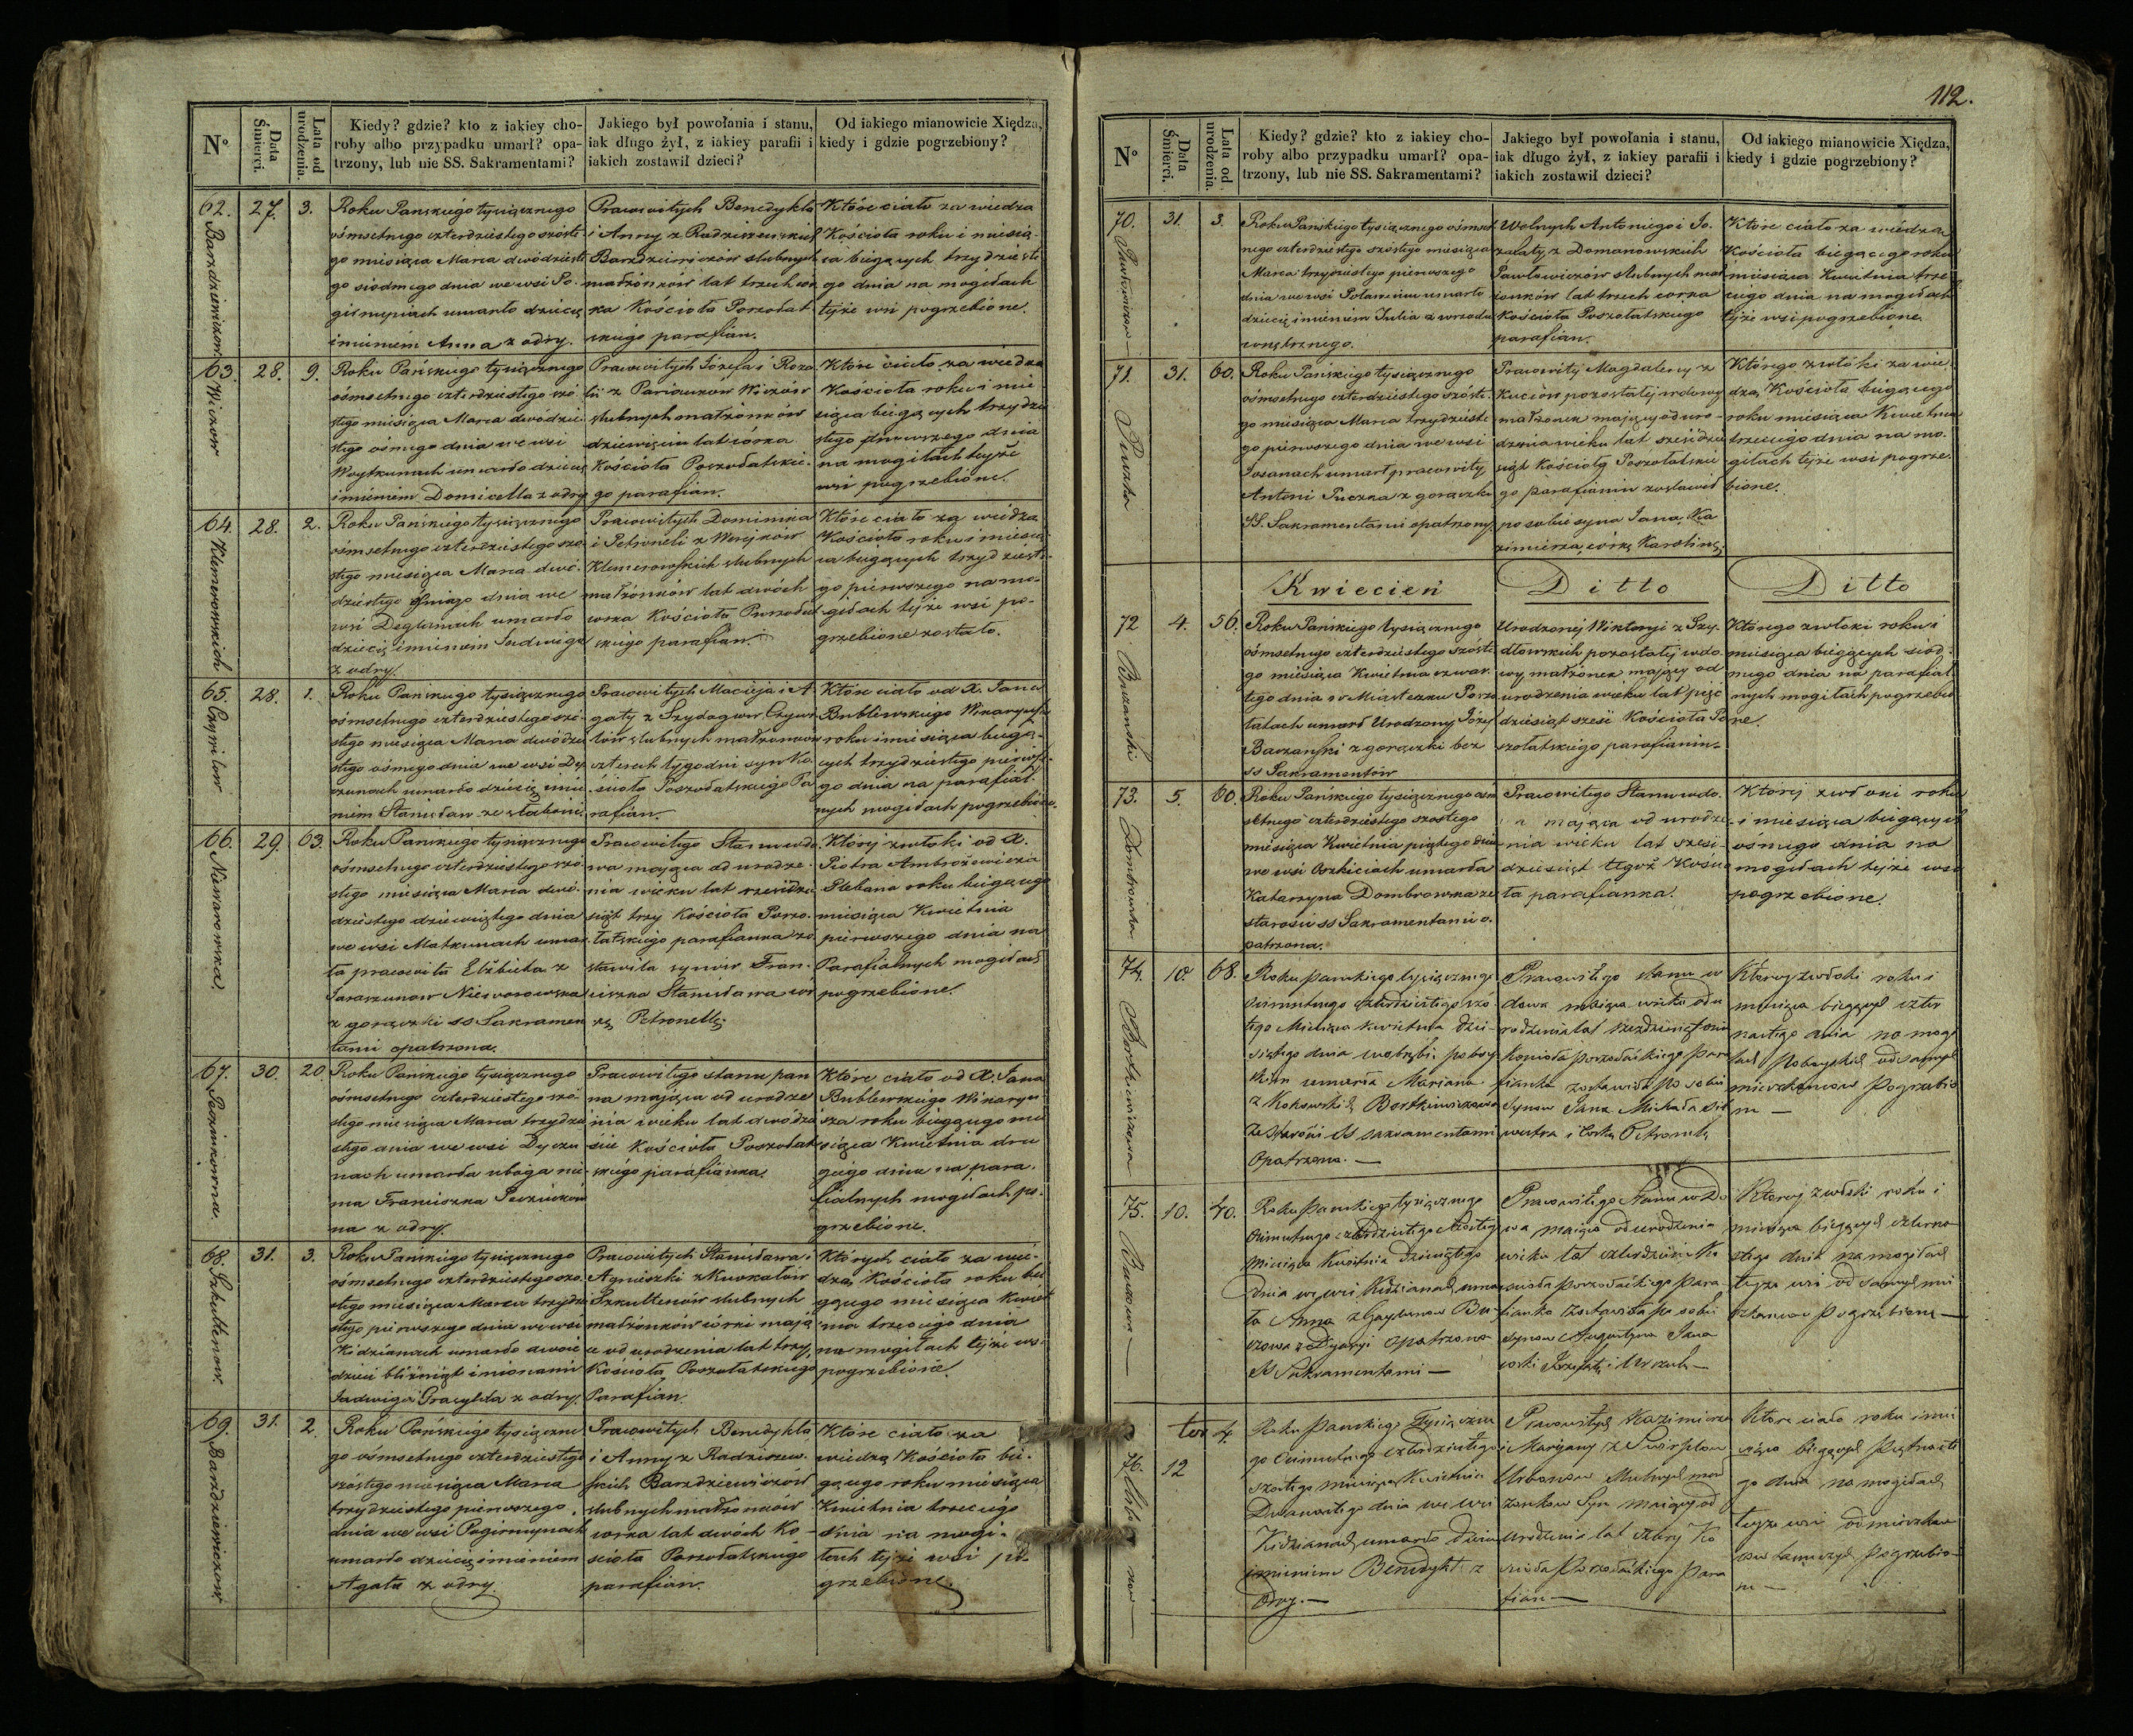 No
Data Śmierci.
Lata od urodzenia.
Kiedy? gdzie? kto z iakiey cho-
roby albo przypadku umarł? opa-
trzony, lub nie SS. Sakramentami?
Jakiego był powołania i stanu,
iak długo żył, z iakiey parafii i
iakich zostawił dzieci?
Od iakiego mianowicie Xiędza,
kiedy i gdzie pogrzebiony?
62.
Bardziewiczow
27.
3.
Roku Panskiego tysiącznego
ośmsetnego czterdziestego szóste-
go miesiąca Marca dwódzieste
go siodmego dnia we wsi Po-
girnupiach umarło dziecię
imieniem Anna z odry.
Pracowitych Benedykta
i Anny z Radziszewskich
Bardziewiczow slubnych
małżonków lat trzech cor
ka Kościoła Poszołat
skiego parafian.
Które ciało za wiedzą
Kościoła roku i miesią-
ca biegących trzydzieste
go dnia na mogiłach
tejże wsi pogrzebione.
63.
Wiczow
28.
9.
Roku Pańskiego tysiącznego
ośmsetnego czterdziestego szó
stego miesiąca Marca dwódzie
stego ósmego dnia we wsi
Woytkunach umarło dziecię
imieniem Domicella z odry
Pracowitych Józefa i Roza
lii z Wiczów
slubnych małżonków
dziewięciu lat córka
Kościoła Poszołatskie-
go parafian.
Które ciało za wiedzą
Kościoła roku i mie
siąca biegących trzydzie
stego pierwszego dnia
na mogiłach tejże
wsi pogrzebione.
64
Klemerowskich
28.
2.
Roku Pańskiego tysiącznego
ośmsetnego czterdziestego szó
stego miesiąca Marca dwó-
dziestego ósmego dnia we
wsi umarło
dziecię imieniem Jadwiga
z odry.
Pracowitych Dominika
i Petroneli z
Klemerowskich slubnych
małżonków lat dwóch
corka Kościoła Poszołat
skiego parafian.
Które ciało za wiedzą
Kościoła roku i miesią
ca biegących trzydzieste-
go pierwszego na mo-
giłach tejże wsi po-
grzebione zostało.
65
28.
1.
Roku Pańskiego tysiącznego
ośmsetnego czterdziestego szó-
stego miesiąca Marca dwódzie
stego ośmego dnia we wsi Dy
czunach umarło dziecię imie
niem Stanisław ze słabości.
Pracowitych Macieja i A
gaty z Szydagow
slubnych małżonków
czterech tygodni syn Ko
ścioła Poszołatskiego Pa
rafian.
Które ciało od X. Jana
Bublewskiego Wikaryusza
roku i miesiąca biegą-
cych trzydziestego pierwsze-
go dnia na parafial-
nych mogiłach pogrzebione.
66.
29.
63.
Roku Pańskiego tysiącznego
ośmsetnego czterdziestego szó
stego miesiąca Marca dwó-
dziestego dziewiątego dnia
we wsi Matkunach umar
ła pracowita Elżbieta z
z gorączki SS Sakramen
tami opatrzona.
Pracowitego Stanu wdo
wa mająca od urodze-
nia wieku lat sześćdzie
siąt trzy Kościoła Poszo-
łatskiego parafianka zo
stawiła synów Fran-
ciszka Stanisława cor
kę Petronellę.
Której zwłoki od X.
Piotra Ambrożewicza
Plebana roku biegącego
miesiąca Kwietnia
pierwszego dnia na
Parafialnych mogiłach
pogrzebione.
67.
30.
20
Roku Pańskiego tysiącznego
ośmsetnego czterdziestego szó-
stego miesiąca Marca trzydzie
stego dnia we wsi Dyczu
nach umarła uboga nie
ma Franciszka
na z odry.
Pracowitego stanu pan
na mająca od urodze
nia wieku lat dwódzie
ście Kościoła Poszołat
skiego parafianka.
Które ciało od X. Jana
Bublewskiego Wikaryu
sza roku biegącego mie
siąca Kwietnia dru
giego dnia na para-
fialnych mogiłach po-
grzebione.
68.
Szkultenow.
31.
3.
Roku Pańskiego tysiącznego
ośmsetnego czterdziestego szó-
stego miesiąca Marca trzydzie
stego pierwszego dnia we wsi
Kidzianach umarło dwoie
dzieci bliźniąt imionami
Jadwiga Gracylda z odry.
Pracowitych Stanisława i
Agnieszki z Kuokałów
Szkultenów slubnych
małżonków córki mają
ce od urodzenia lat trzy,
Kościoła Poszołatskiego
Parafian.
Których ciało za wie-
dzą Kościoła roku bie
gącego miesiąca Kwiet
nia trzeciego dnia
na mogiłach tejże wsi
pogrzebione.
69.
Bardziewiczow
31.
2.
Roku Pańskiego tysiączne
go ośmsetnego czterdziestego
szóstego miesiąca Marca
trzydziestego pierwszego
dnia we wsi Pogirnupiach
umarło dziecię imieniem
Agata z odry.
Pracowitych Benedykta
i Anny z Radziszew-
skich Bardziewiczów
slubnych małżonków
corka lat dwóch Ko-
ścioła Poszołatskiego
parafian.
Które ciało za
wiedzą Kościoła bie-
gącego roku miesiąca
Kwietnia trzeciego
dnia na mogi-
łach tejże wsi po-
grzebione.
112.
No
Data Śmierci.
Lata od urodzenia.
Kiedy? gdzie? kto z iakiey cho-
roby albo przypadku umarł? opa-
trzony, lub nie SS. Sakramentami?
Jakiego był powołania i stanu,
iak długo żył, z iakiey parafii i
iakich zostawił dzieci?
Od iakiego mianowicie Xiędza,
kiedy i gdzie pogrzebiony?
70.
Pawłowiczow
31.
3.
Roku Pańskiego tysiącznego ośmset
nego czterdziestego szóstego miesiąca
Marca trzydziestego pierwszego
dnia we wsi umarło
dziecię imieniem Julia z wrzodu
wnętrznego.
Wolnych Antoniego i Jo-
zefaty z Domanowskich
Pawłowiczów slubnych mał
żonków lat trzech corka
Kościoła Poszołatskiego
parafian.
Które ciało za wiedzą
Kościoła biegącego roku
miesiąca Kwietnia trze
ciego dnia na mogiłach
tejże wsi pogrzebione.
71.
Puczka
31.
60.
Roku Pańskiego tysiącznego
ośmsetnego czterdziestego szóste-
go miesiąca Marca trzydzieste
go pierwszego dnia we wsi
umarł pracowity
Antoni Puczka z gorączki
SS. Sakramentami opatrzony.
Pracowitej Magdaleny z
pozostałej wdowy
małżonek mający od uro-
dzenia wieku lat sześćdzie
siąt Kościoła Poszołatskie
go parafianin zostawił
po sobie syna Jana, Ka
zimierza, córkę Karolinę.
Którego zwłoki za wie-
dzą Kościoła biegącego
roku miesiąca Kwietnia
trzeciego dnia na mo-
giłach tejże wsi pogrze-
bione.
Kwiecień
Ditto
Ditto
72
4.
56.
Roku Pańskiego tysiącznego
ośmsetnego czterdziestego szóste
go miesiąca Kwietnia czwar-
tego dnia w Miasteczku Poszo
łatach umarł Urodzony Józef
z gorączki bez
SS Sakramentów
Urodzonej Wiktoryi z Szy-
dłowskich pozostałej wdo
wy małżonek mający od
urodzenia wieku lat pięć
dziesiąt sześć Kościoła Po
szołatskiego parafianin.
Którego zwłoki roku i
miesiąca biegących siód-
mego dnia na parafial
nych mogiłach pogrzebio
ne.
73.
Dombrowska
5.
60.
Roku Pańskiego tysiącznego osm
setnego czterdziestego szostego
miesiąca Kwietnia piątego dnia
we wsi umarła
Katarzyna Dombrowska ze
starości SS Sakramentami o-
patrzona.
Pracowitego Stanu wdo-
a mająca od urodze
nia wieku lat sześć-
dziesiąt tegoż Kościo
ła parafianka.
Której zwłoki roku
i miesiąca biegących
ósmego dnia na
mogiłach tejże wsi
pogrzebione.
74.
Bortkiewiczowa
10
68.
Roku Pańskiego tysiącznego
ośmsetnego czterdziestego szo-
stego Miesiąca Kwietnia dzie-
siątego dnia
umarła Marianna
Bortkiewiczowa
ze starości SS sakramentami
Opatrzona.—
Pracowitego stanu w
dowa mająca wieku od u
rodzenia lat sześćdziesiąt osm
Kościoła Poszołatskiego Para
fianka zostawiła po sobie
Synow Jana Michała Sil
westra i Corkę Petronelę
Ktorey zwłoki roku i
miesiąca biegących czter
nastego dnia na mogi
łach
mieszkancow Pogrzebio
ne —
75.
10.
40.
Roku Pańskiego tysiącznego
Ośmsetnego czterdziestego szóstego
Miesiąca Kwietnia dziesiątego
dnia we wsi Kidzianach umar
ła Anna
Opatrzona
SS Sakramentami —
Pracowitego Stanu wdo
wa mająca od urodzenia
wieku lat czterdzieści Ko
ścioła Poszołatskiego Para
fianka zostawiła po sobie
synow Augustyna Jana
corki Jozefatę i Urszulę —
Ktorey zwłoki roku i
miesiąca biegących czterna
stego dnia na mogiłach
teyże wsi od samych mie
szkancow Pogrzebione —
76.
12
4.
Roku Pańskiego Tysiączne
go Ośmsetnego czterdziestego
szostego miesiąca Kwietnia
Dwunastego dnia we wsi
Kidzianach umarło dziecie
imieniem Benedykt z
Odry.—
Pracowitych Kazimierza
i Maryanny z
Urbanow slubnych mał
żonkow Syn maiący od
urodzenia lat cztery Ko
ścioła Poszołatskiego Para
fian —
Ktore ciało roku i mie
siąca biegących Piętnaste
go dnia na mogiłach
teyże wsi od mieszkan
cow tamecznych Pogrzebio
ne —